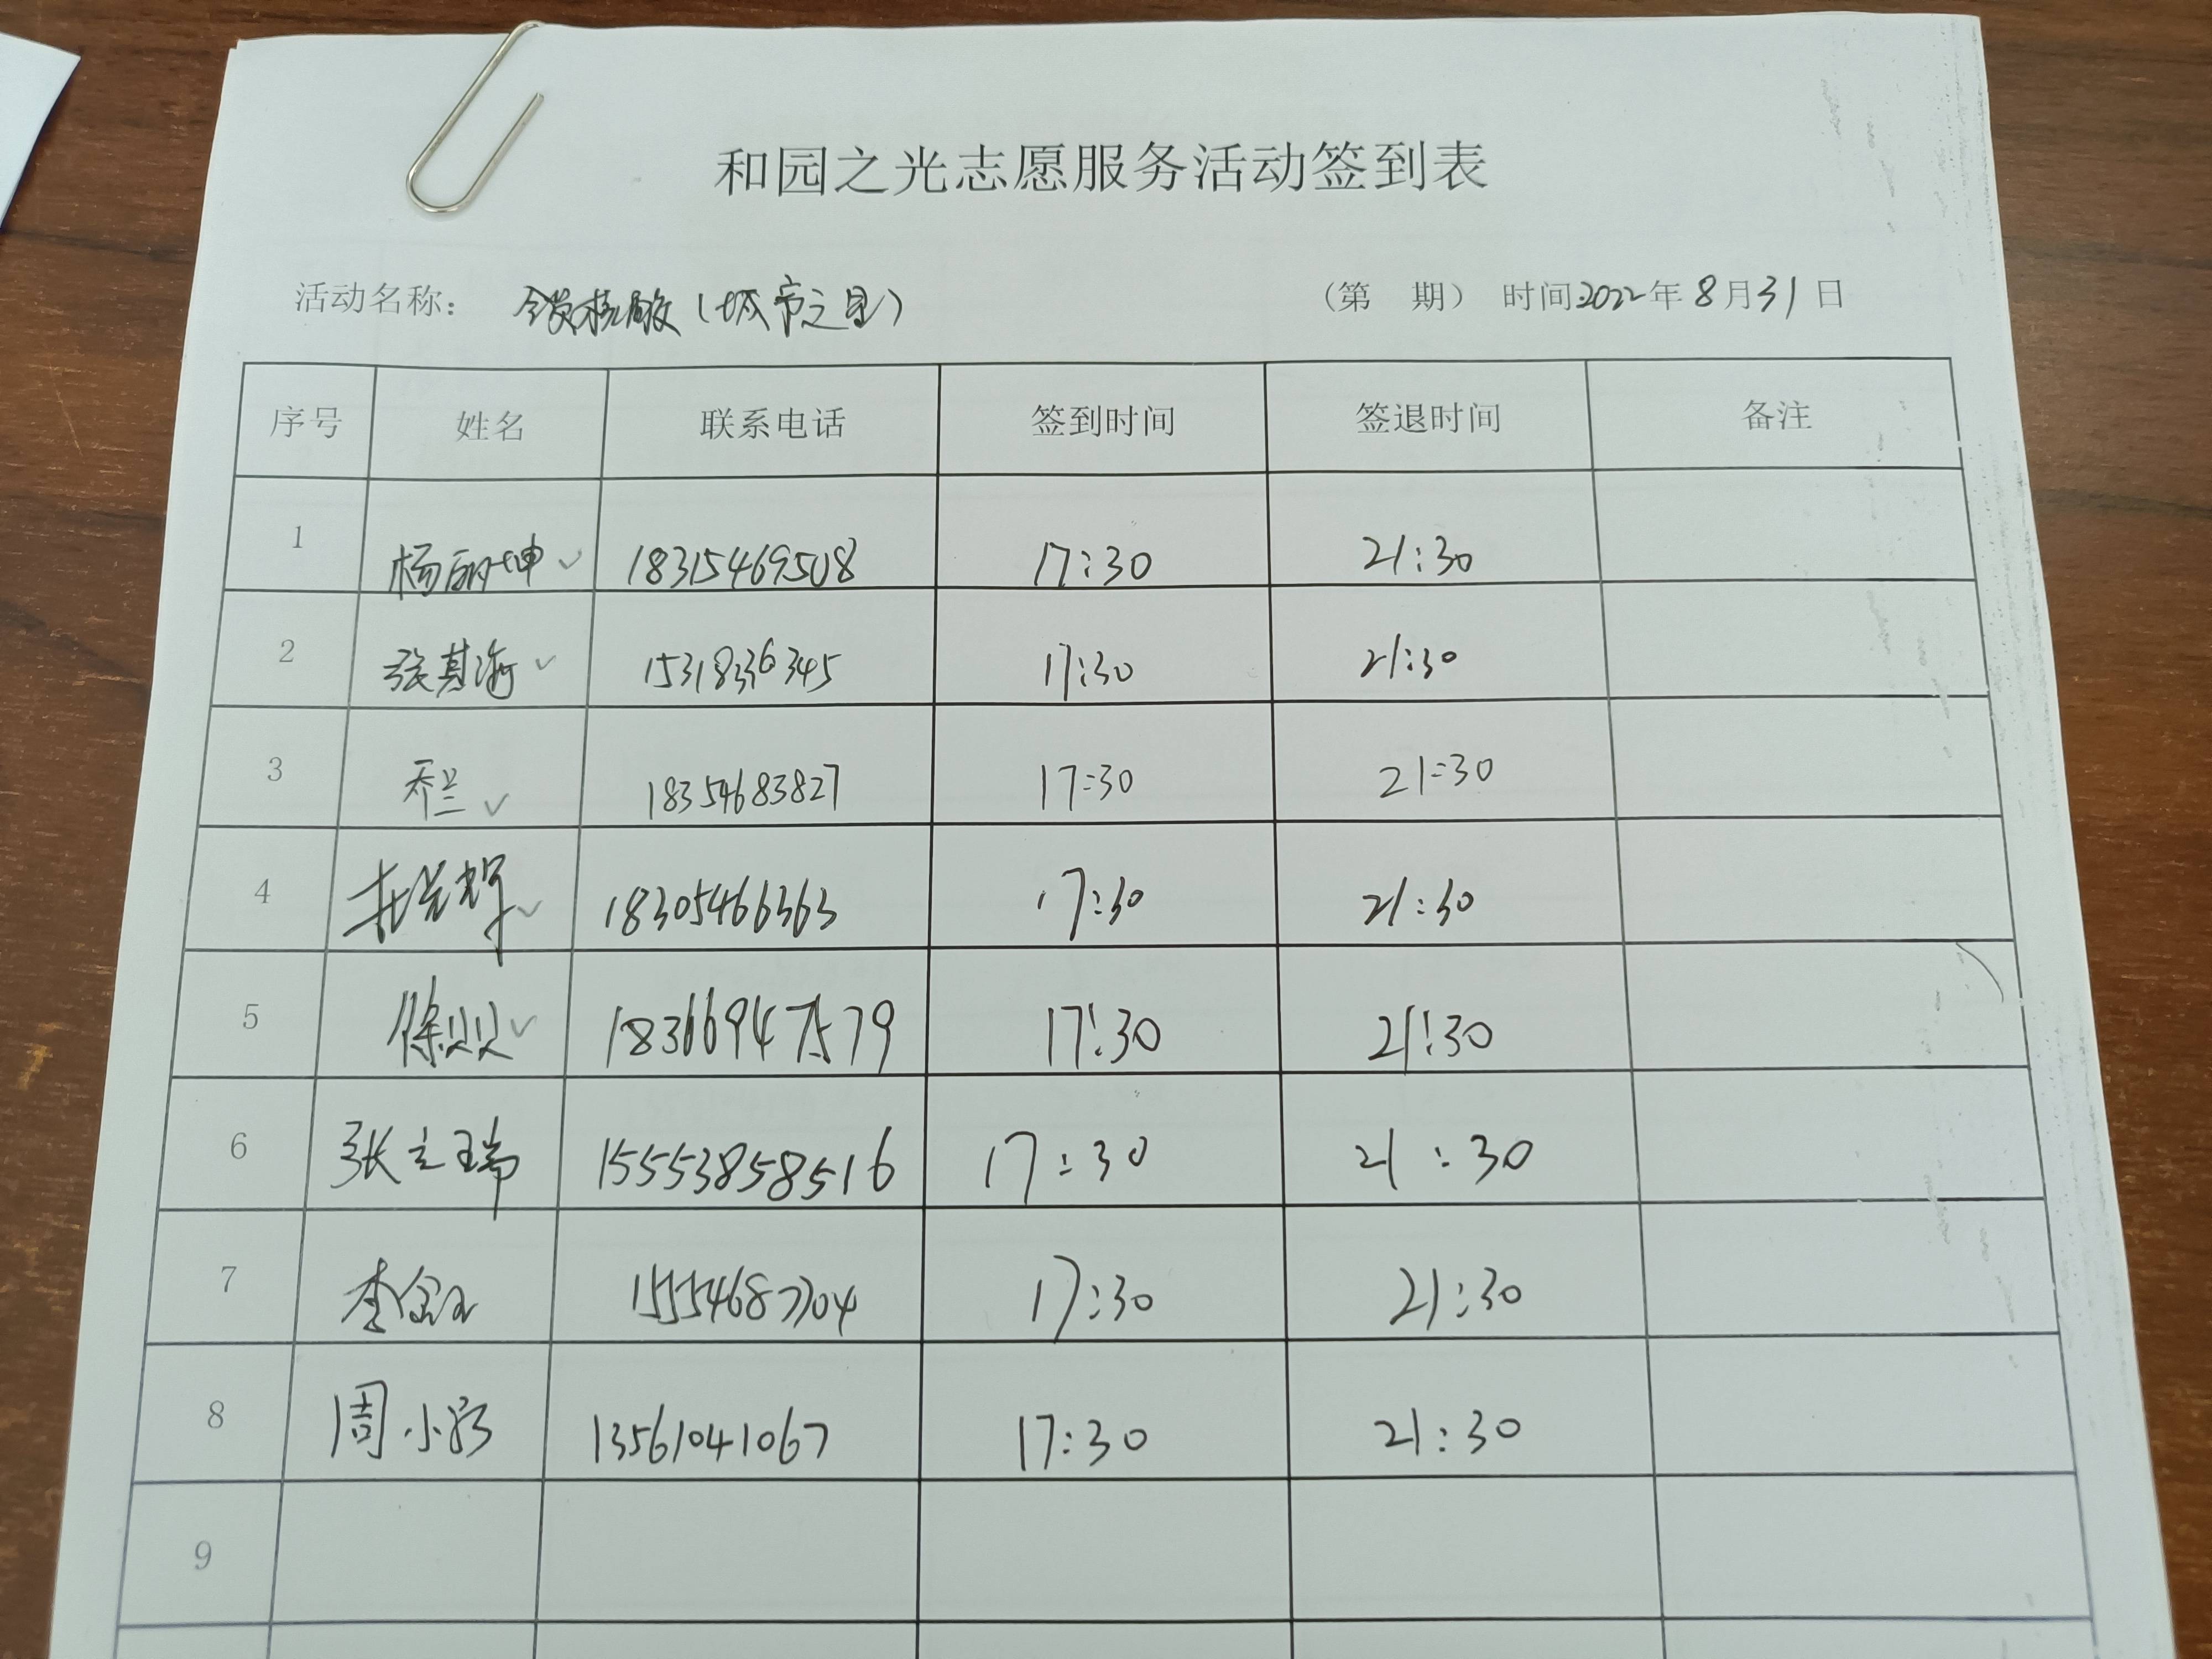 和园之光志愿服务活动签到表
活动名称： 全员核酸（城市之星） （第 期） 时间2022年8月31日
序号 姓名 联系电话 签到时间 签退时间 备注
1 杨丽坤✓ 18315469508 17:30 21:30
2 张基海✓ 15318336345 17:30 21:30
3 乔兰✓ 18354683827 17:30 21:30
4 ✓ 18305466363 17:30 21:30
5 徐贝贝✓ 18366947579 17:30 21:30
6 张立瑞 15553858516 17:30 21:30
7 李金玉 15554687704 17:30 21:30
8 周小 13561041067 17:30 21:30
9